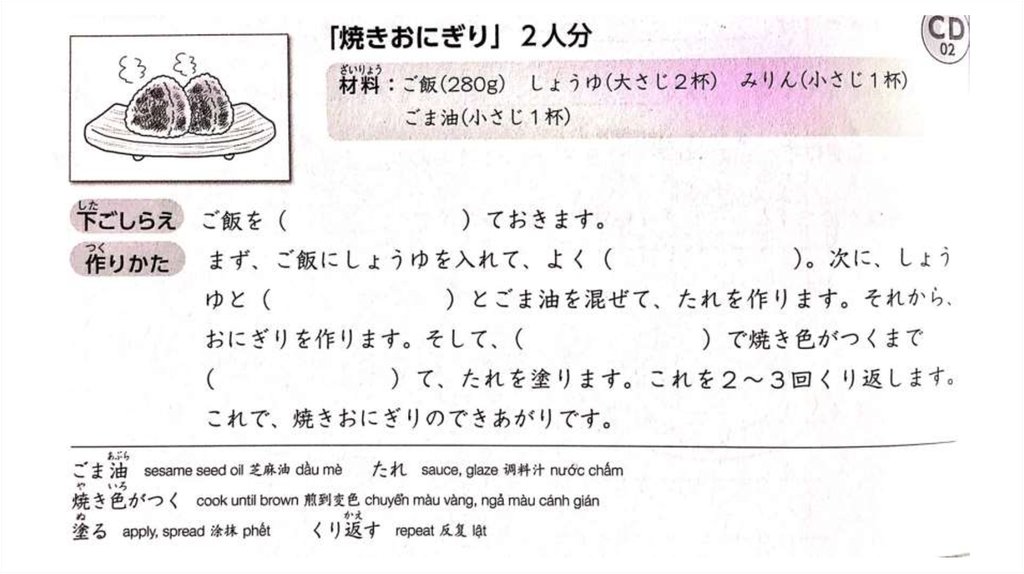 「焼きおにぎり」2人分
CD
02
ざいりょう
材料：ご飯(280g)　しょうゆ(大さじ２杯)　みりん(小さじ１杯)
ごま油(小さじ１杯)
した
下ごしらえ　ご飯を（　　　　　　　　）ておきます。
つく
作りかた　まず、ご飯にしょうゆを入れて、よく（　　　　　　　　）。次に、しょう
ゆと（　　　　　　　　）とごま油を混ぜて、たれを作ります。それから、
おにぎりを作ります。そして、（　　　　　　　　）で焼き色がつくまで
（　　　　　　　　）て、たれを塗ります。これを２～３回くり返します。
これで、焼きおにぎりのできあがりです。
あぶら
ごま油　sesame seed oil 芝麻油 dầu mè　たれ　sauce, glaze 调料汁 nước chấm
や　いろ
焼き色がつく　cook until brown 煎到变色 chuyển màu vàng, ngả màu cánh gián
ぬ　かえ
塗る　apply, spread 涂抹 phết　くり返す　repeat 反复 lật